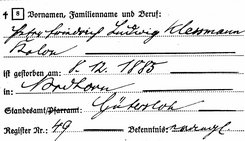 + 8 Vornamen, Familienname und Beruf:
Friedrich Ludwig Klessmann
Kolon
ist gestorben am: 8. 12. 1885
in Nordhorn
Standesamt/Pfarramt: Gütersloh
Register Nr.: 49 Bekenntnis: evangl